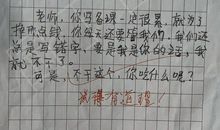 老师，你写备课一定很累，就为了
挣那点钱，你每天还要管我们，我们还
总是写错字，要是我是你的话，我
就不干了。
可是，不干这个，你吃什么呢？
说得有道理！